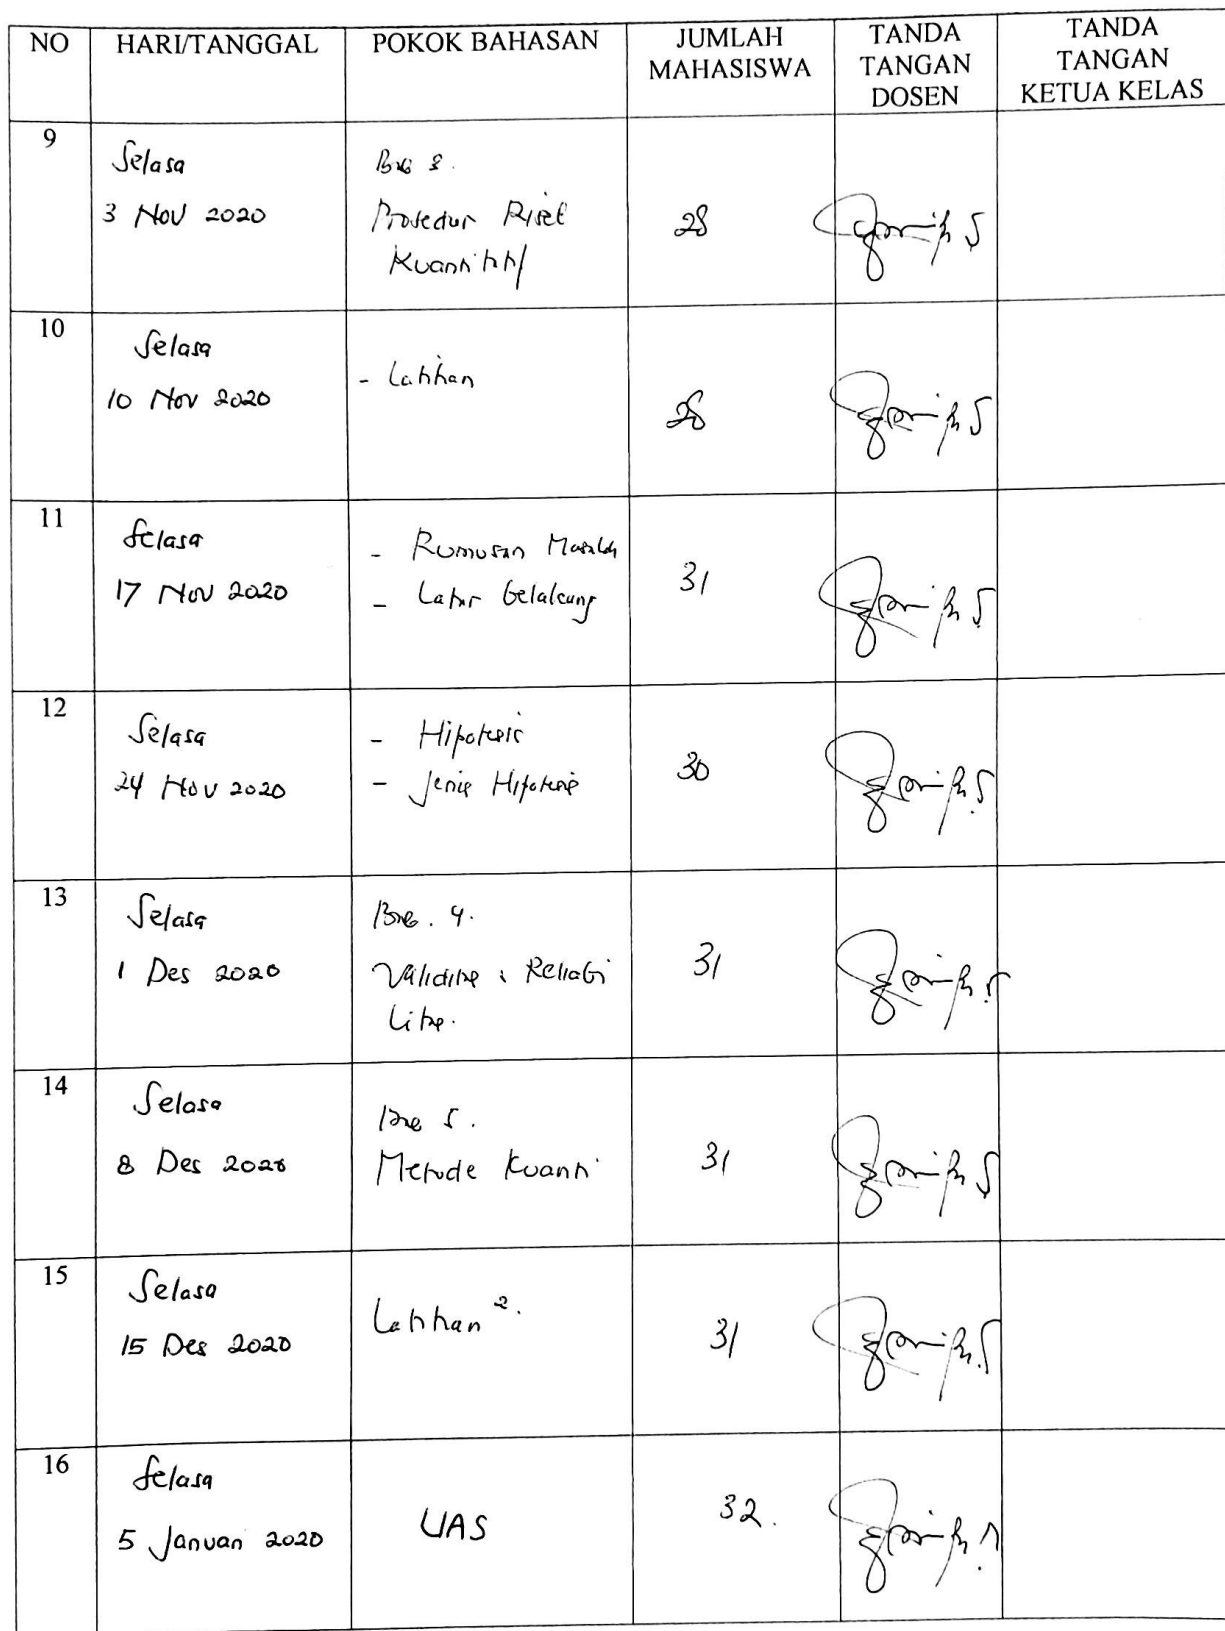 NO HARI/TANGGAL POKOK BAHASAN JUMLAH MAHASISWA TANDA TANGAN DOSEN TANDA TANGAN KETUA KELAS
9
Selasa
3 Nov 2020
Bab 3.
Prosedur Riset
Kuantitatif
28
10
Selasa
10 Nov 2020
- Latihan
28
11
Selasa
17 Nov 2020
- Rumusan Masalah
- Latar belakang
31
12
Selasa
24 Nov 2020
- Hipotesis
- Jenis Hipotesis
30
13
Selasa
1 Des 2020
Bab. 4.
Validitas & Reliabi
litas.
31
14
Selasa
8 Des 2020
Bab 5.
Metode Kuanti
31
15
Selasa
15 Des 2020
Latihan 2.
31
16
Selasa
5 Januari 2020
UAS
32.